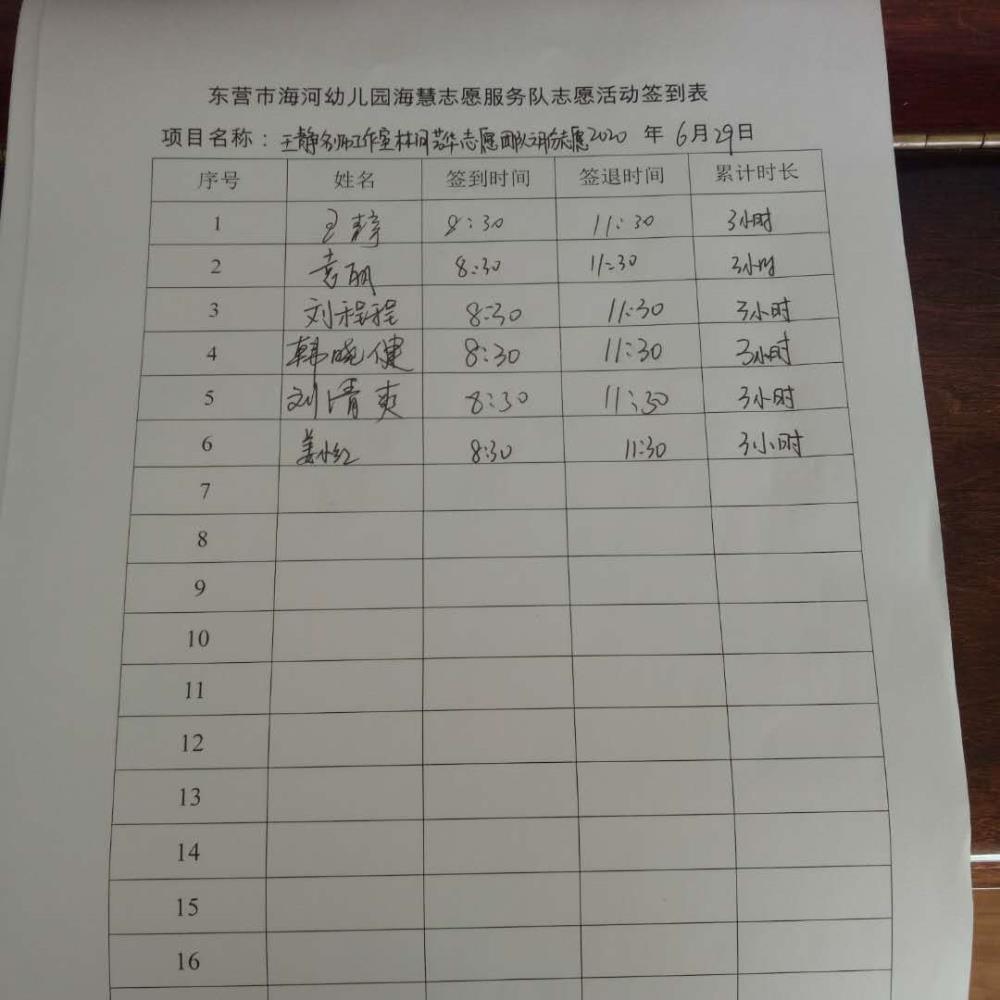 东营市海河幼儿园海慧志愿服务队志愿活动签到表
项目名称：王静名师工作室 志愿团队 志愿2020 年 6月29日
序号 姓名 签到时间 签退时间 累计时长
1 王静 8:30 11:30 3小时
2 袁丽 8:30 11:30 3小时
3 刘程程 8:30 11:30 3小时
4 韩晓健 8:30 11:30 3小时
5 刘清爽 8:30 11:30 3小时
6 姜小红 8:30 11:30 3小时
7
8
9
10
11
12
13
14
15
16